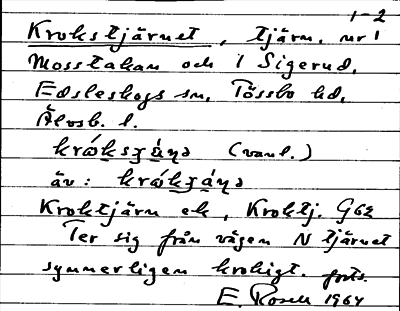 1-2
Krokstjärnet, tjärn, nr 1
Mosstakan och 1 Sigerud,
Edsleskogs sn, Tössbo hd,
Älvsb. l.
(vanl.)
äv:
Kroktjärn ek, Kroktj. G62
Ter sig från vägen N tjärnet
synnerligen krokigt. forts.
E. Rosell 1964